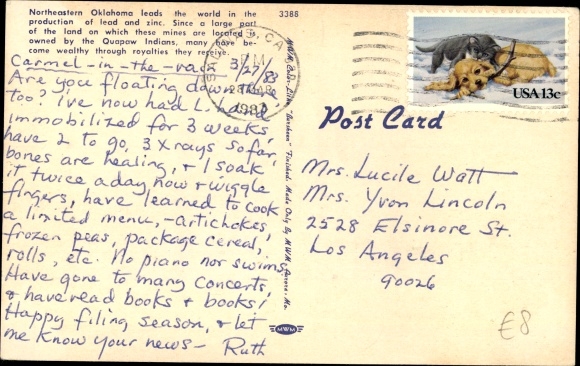 Northeastern Oklahoma leads the world in the
production of lead and zinc. Since a large part
of the land on which these mines are located is
owned by the Quapaw Indians, many have be-
come wealthy through royalties they receive.
3388
Carmel-in-the-rain 3/27/83
Are you floating down there
too? I've now had L. hand
immobilized for 3 weeks,
have 2 to go, 3 X rays so far,
bones are healing, & I soak
it twice a day now & wiggle
fingers, have learned to cook
a limited menu, - artichokes,
frozen peas, package cereal,
rolls, etc. No piano nor swims.
Have gone to many concerts
& have read books & books!
Happy filing season, & let
me know your news - Ruth
PM
28 MAR
1983
USA 13c
Post Card
Mrs. Lucile Watt
Mrs. Yvon Lincoln
2528 Elsinore St.
Los Angeles
90026
E8
MWM